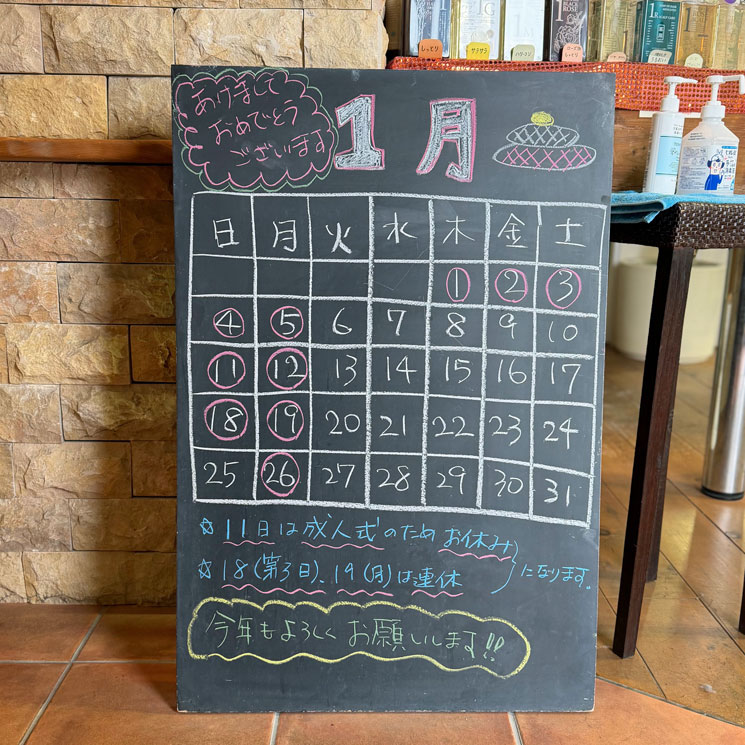 しっとり
サラサラ
あけまして
おめでとう
ございます
1月
日 月 火 水 木 金 土
1 2 3
4 5 6 7 8 9 10
11 12 13 14 15 16 17
18 19 20 21 22 23 24
25 26 27 28 29 30 31
☆ 11日は成人式のため お休み
☆ 18(第3日)、19(月)は連休
になります。
今年もよろしく お願いします!!